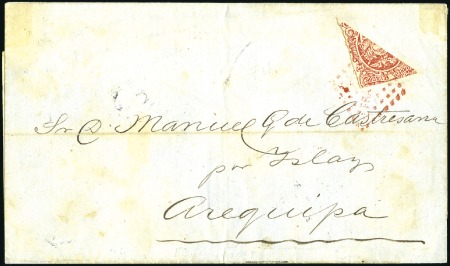 Sr D. Manuel G. de Castresana
por Islay
Arequipa